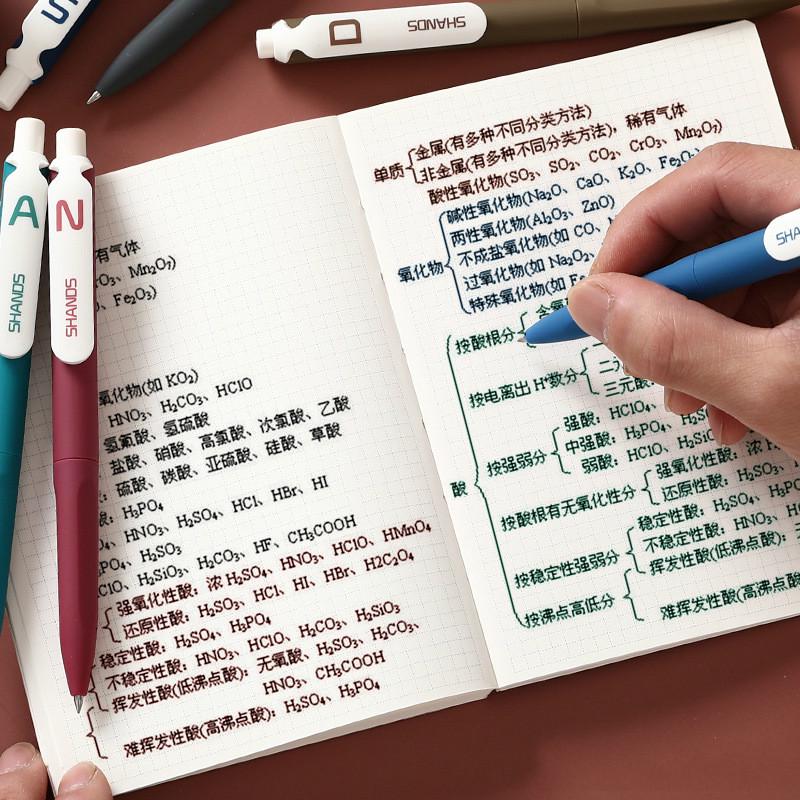 S
D SHANDS
A SHANDS
N SHANDS
SHA
有气体
rO₃、Mn₂O₇)
、Fe₂O₃)
氧化物(如 KO₂)
HNO₃、H₂CO₃、HClO
氢氟酸、氢硫酸
盐酸、硝酸、高氯酸、次氯酸、乙酸
:硫酸、碳酸、亚硫酸、硅酸、草酸
酸:H₃PO₄
、HNO₃、H₂SO₄、HCl、HBr、HI
PO₄、H₂SO₃
ClO、H₂SiO₃、H₂CO₃、HF、CH₃COOH
强氧化性酸:浓 H₂SO₄、HNO₃、HClO、HMnO₄
还原性酸:H₂SO₃、HCl、HI、HBr、H2C₂O₄
稳定性酸:H₂SO₄、H₃PO₄
不稳定性酸:HNO₃、HClO、H₂CO₃、H₂SiO₃
挥发性酸(低沸点酸):无氧酸、H₂SO₃、H₂CO₃、
HNO₃、CH₃COOH
难挥发性酸(高沸点酸):H₂SO₄、H₃PO₄
单质
金属(有多种不同分类方法)
非金属(有多种不同分类方法),稀有气体
氧化物
酸性氧化物(SO₃、SO₂、CO₂、CrO₃、Mn₂O₇)
碱性氧化物(Na₂O、CaO、K₂O、Fe₂O₃)
两性氧化物(Al₂O₃、ZnO)
不成盐氧化物(如 CO、
过氧化物(如 Na₂O₂、
特殊氧化物(如 Fe
酸
按酸根分
含氧
按电离出 H⁺数分
二元
三元酸:
按强弱分
强酸:HClO₄、
中强酸:H₃PO₄、H₂SO
弱酸:HClO、H₂SiO
按酸根有无氧化性分
强氧化性酸:浓 H
还原性酸:H₂SO₃、
按稳定性强弱分
稳定性酸:H₂SO₄、H₃PO
不稳定性酸:HNO₃、H
按沸点高低分
挥发性酸(低沸点酸):
难挥发性酸(高沸点酸